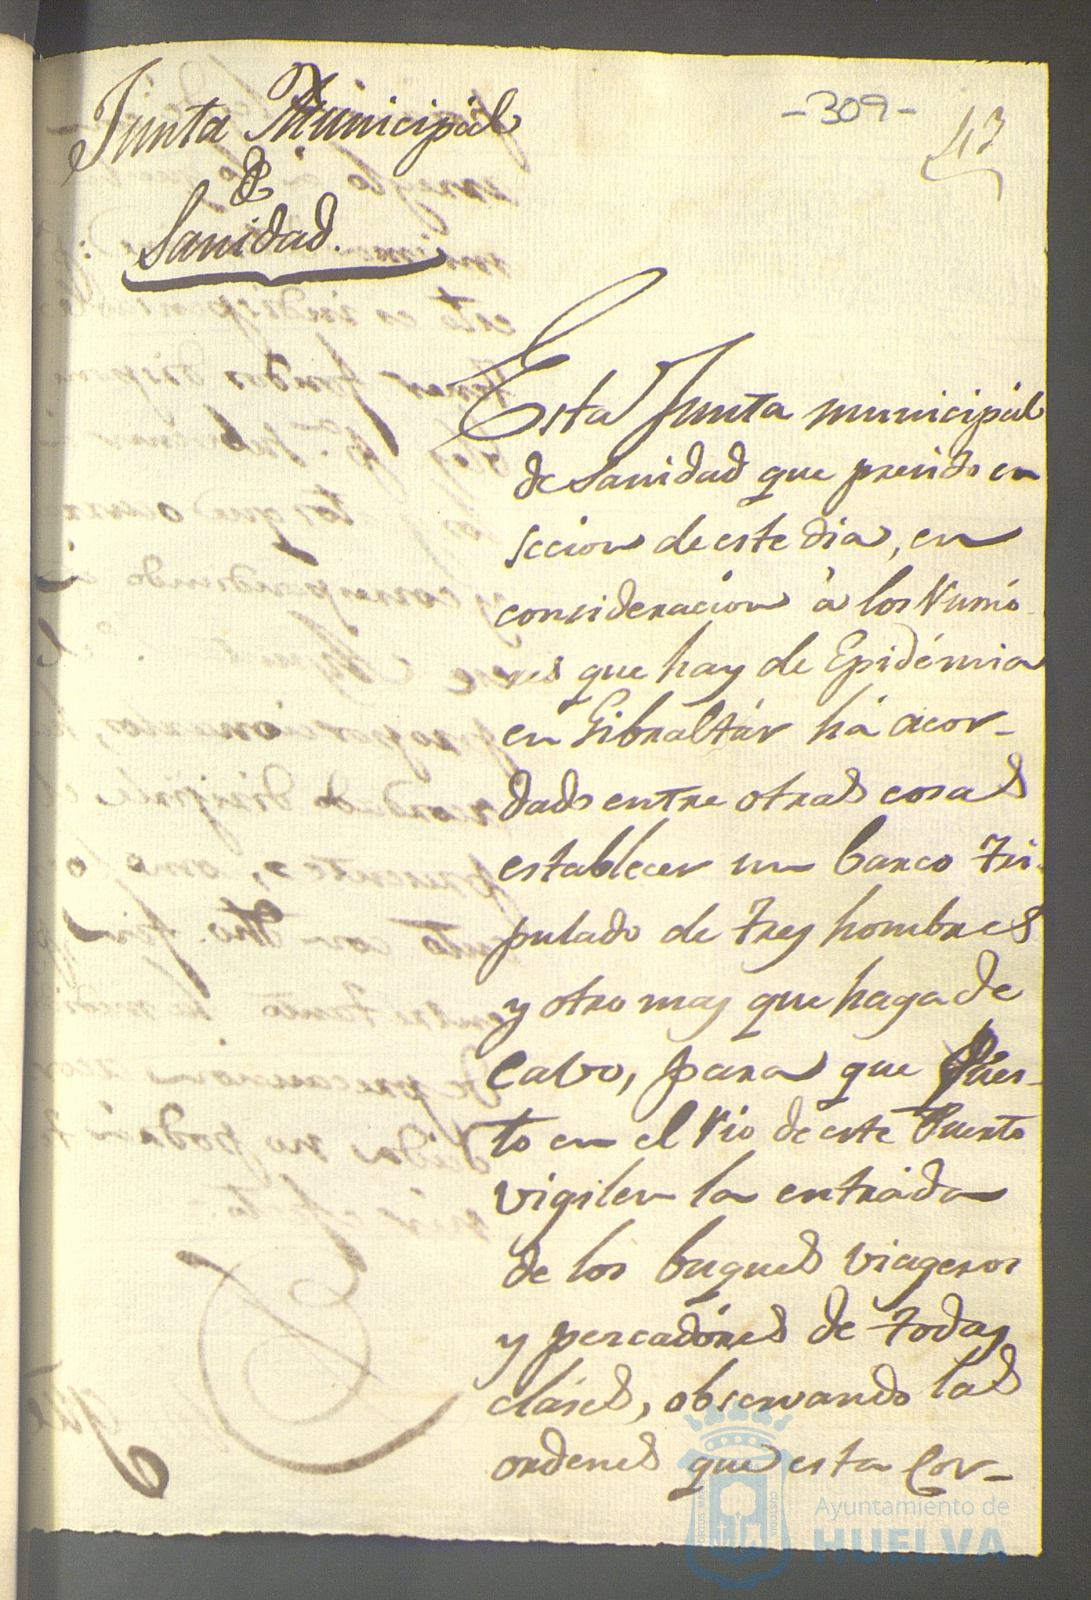 Junta Municipal
de
Sanidad.
-309-
43
Esta Junta municipal
de Sanidad que presido en
seccion de este dia, en
consideracion à los Rumo
res que hay de Epidémia
en Gibraltár há acor-
dado entre otras cosas
establecer un barco tri-
pulado de tres hombres
y otro mas que haga de
Cabo, para que Pues-
to en el Rio de este Puerto
vigilen la entráda
de los buques viageros
y pescadóres de todas
cláses, observando las
ordenes que esta Cor-
Ayuntamiento de
HUELVA